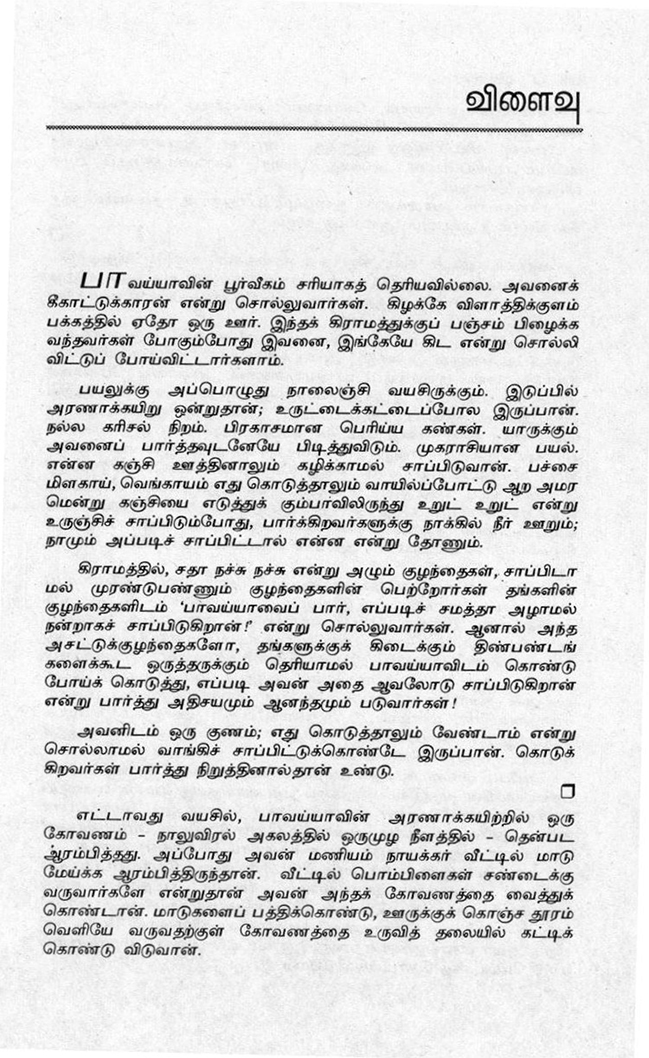 விளைவு
பாவய்யாவின் பூர்வீகம் சரியாகத் தெரியவில்லை. அவனைக்
கீகாட்டுக்காரன் என்று சொல்லுவார்கள். கிழக்கே விளாத்திக்குளம்
பக்கத்தில் ஏதோ ஒரு ஊர். இந்தக் கிராமத்துக்குப் பஞ்சம் பிழைக்க
வந்தவர்கள் போகும்போது இவனை, இங்கேயே கிட என்று சொல்லி
விட்டுப் போய்விட்டார்களாம்.
பயலுக்கு அப்பொழுது நாலைஞ்சி வயசிருக்கும். இடுப்பில்
அரணாக்கயிறு ஒன்றுதான்; உருட்டைக்கட்டைப்போல இருப்பான்.
நல்ல கரிசல் நிறம். பிரகாசமான பெரிய்ய கண்கள். யாருக்கும்
அவனைப் பார்த்தவுடனேயே பிடித்துவிடும். முகராசியான பயல்.
என்ன கஞ்சி ஊத்தினாலும் கழிக்காமல் சாப்பிடுவான். பச்சை
மிளகாய், வெங்காயம் எது கொடுத்தாலும் வாயில்ப்போட்டு ஆற அமர
மென்று கஞ்சியை எடுத்துக் கும்பாவிலிருந்து உறுட் உறுட் என்று
உருஞ்சிச் சாப்பிடும்போது, பார்க்கிறவர்களுக்கு நாக்கில் நீர் ஊறும்;
நாமும் அப்படிச் சாப்பிட்டால் என்ன என்று தோணும்.
கிராமத்தில், சதா நச்சு நச்சு என்று அழும் குழந்தைகள், சாப்பிடா
மல் முரண்டுபண்ணும் குழந்தைகளின் பெற்றோர்கள் தங்களின்
குழந்தைகளிடம் ‘பாவய்யாவைப் பார், எப்படிச் சமத்தா அழாமல்
நன்றாகச் சாப்பிடுகிறான்!’ என்று சொல்லுவார்கள். ஆனால் அந்த
அசட்டுக்குழந்தைகளோ, தங்களுக்குக் கிடைக்கும் திண்பண்டங்
களைக்கூட ஒருத்தருக்கும் தெரியாமல் பாவய்யாவிடம் கொண்டு
போய்க் கொடுத்து, எப்படி அவன் அதை ஆவலோடு சாப்பிடுகிறான்
என்று பார்த்து அதிசயமும் ஆனந்தமும் படுவார்கள்!
அவனிடம் ஒரு குணம்; எது கொடுத்தாலும் வேண்டாம் என்று
சொல்லாமல் வாங்கிச் சாப்பிட்டுக்கொண்டே இருப்பான். கொடுக்
கிறவர்கள் பார்த்து நிறுத்தினால்தான் உண்டு.
எட்டாவது வயசில், பாவய்யாவின் அரணாக்கயிற்றில் ஒரு
கோவணம் – நாலுவிரல் அகலத்தில் ஒருமுழ நீளத்தில் – தென்பட
ஆரம்பித்தது. அப்போது அவன் மணியம் நாயக்கர் வீட்டில் மாடு
மேய்க்க ஆரம்பித்திருந்தான். வீட்டில் பொம்பிளைகள் சண்டைக்கு
வருவார்களே என்றுதான் அவன் அந்தக் கோவணத்தை வைத்துக்
கொண்டான். மாடுகளைப் பத்திக்கொண்டு, ஊருக்குக் கொஞ்ச தூரம்
வெளியே வருவதற்குள் கோவணத்தை உருவித் தலையில் கட்டிக்
கொண்டு விடுவான்.